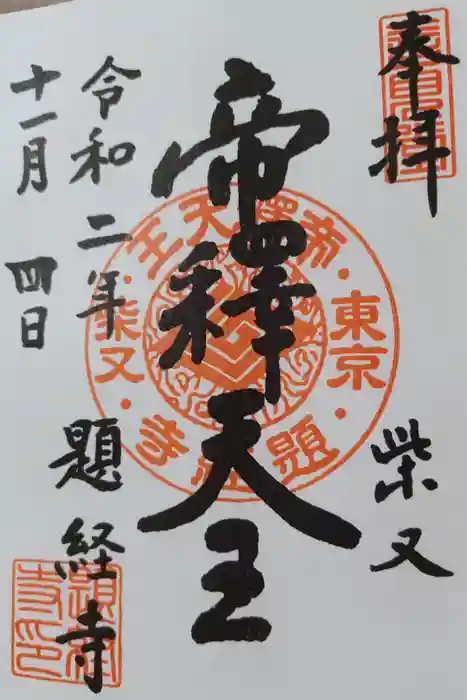 奉拝
柴又
帝釋天王
令和二年
十一月四日
題経寺
帝釋天王
東京
柴又
題経寺